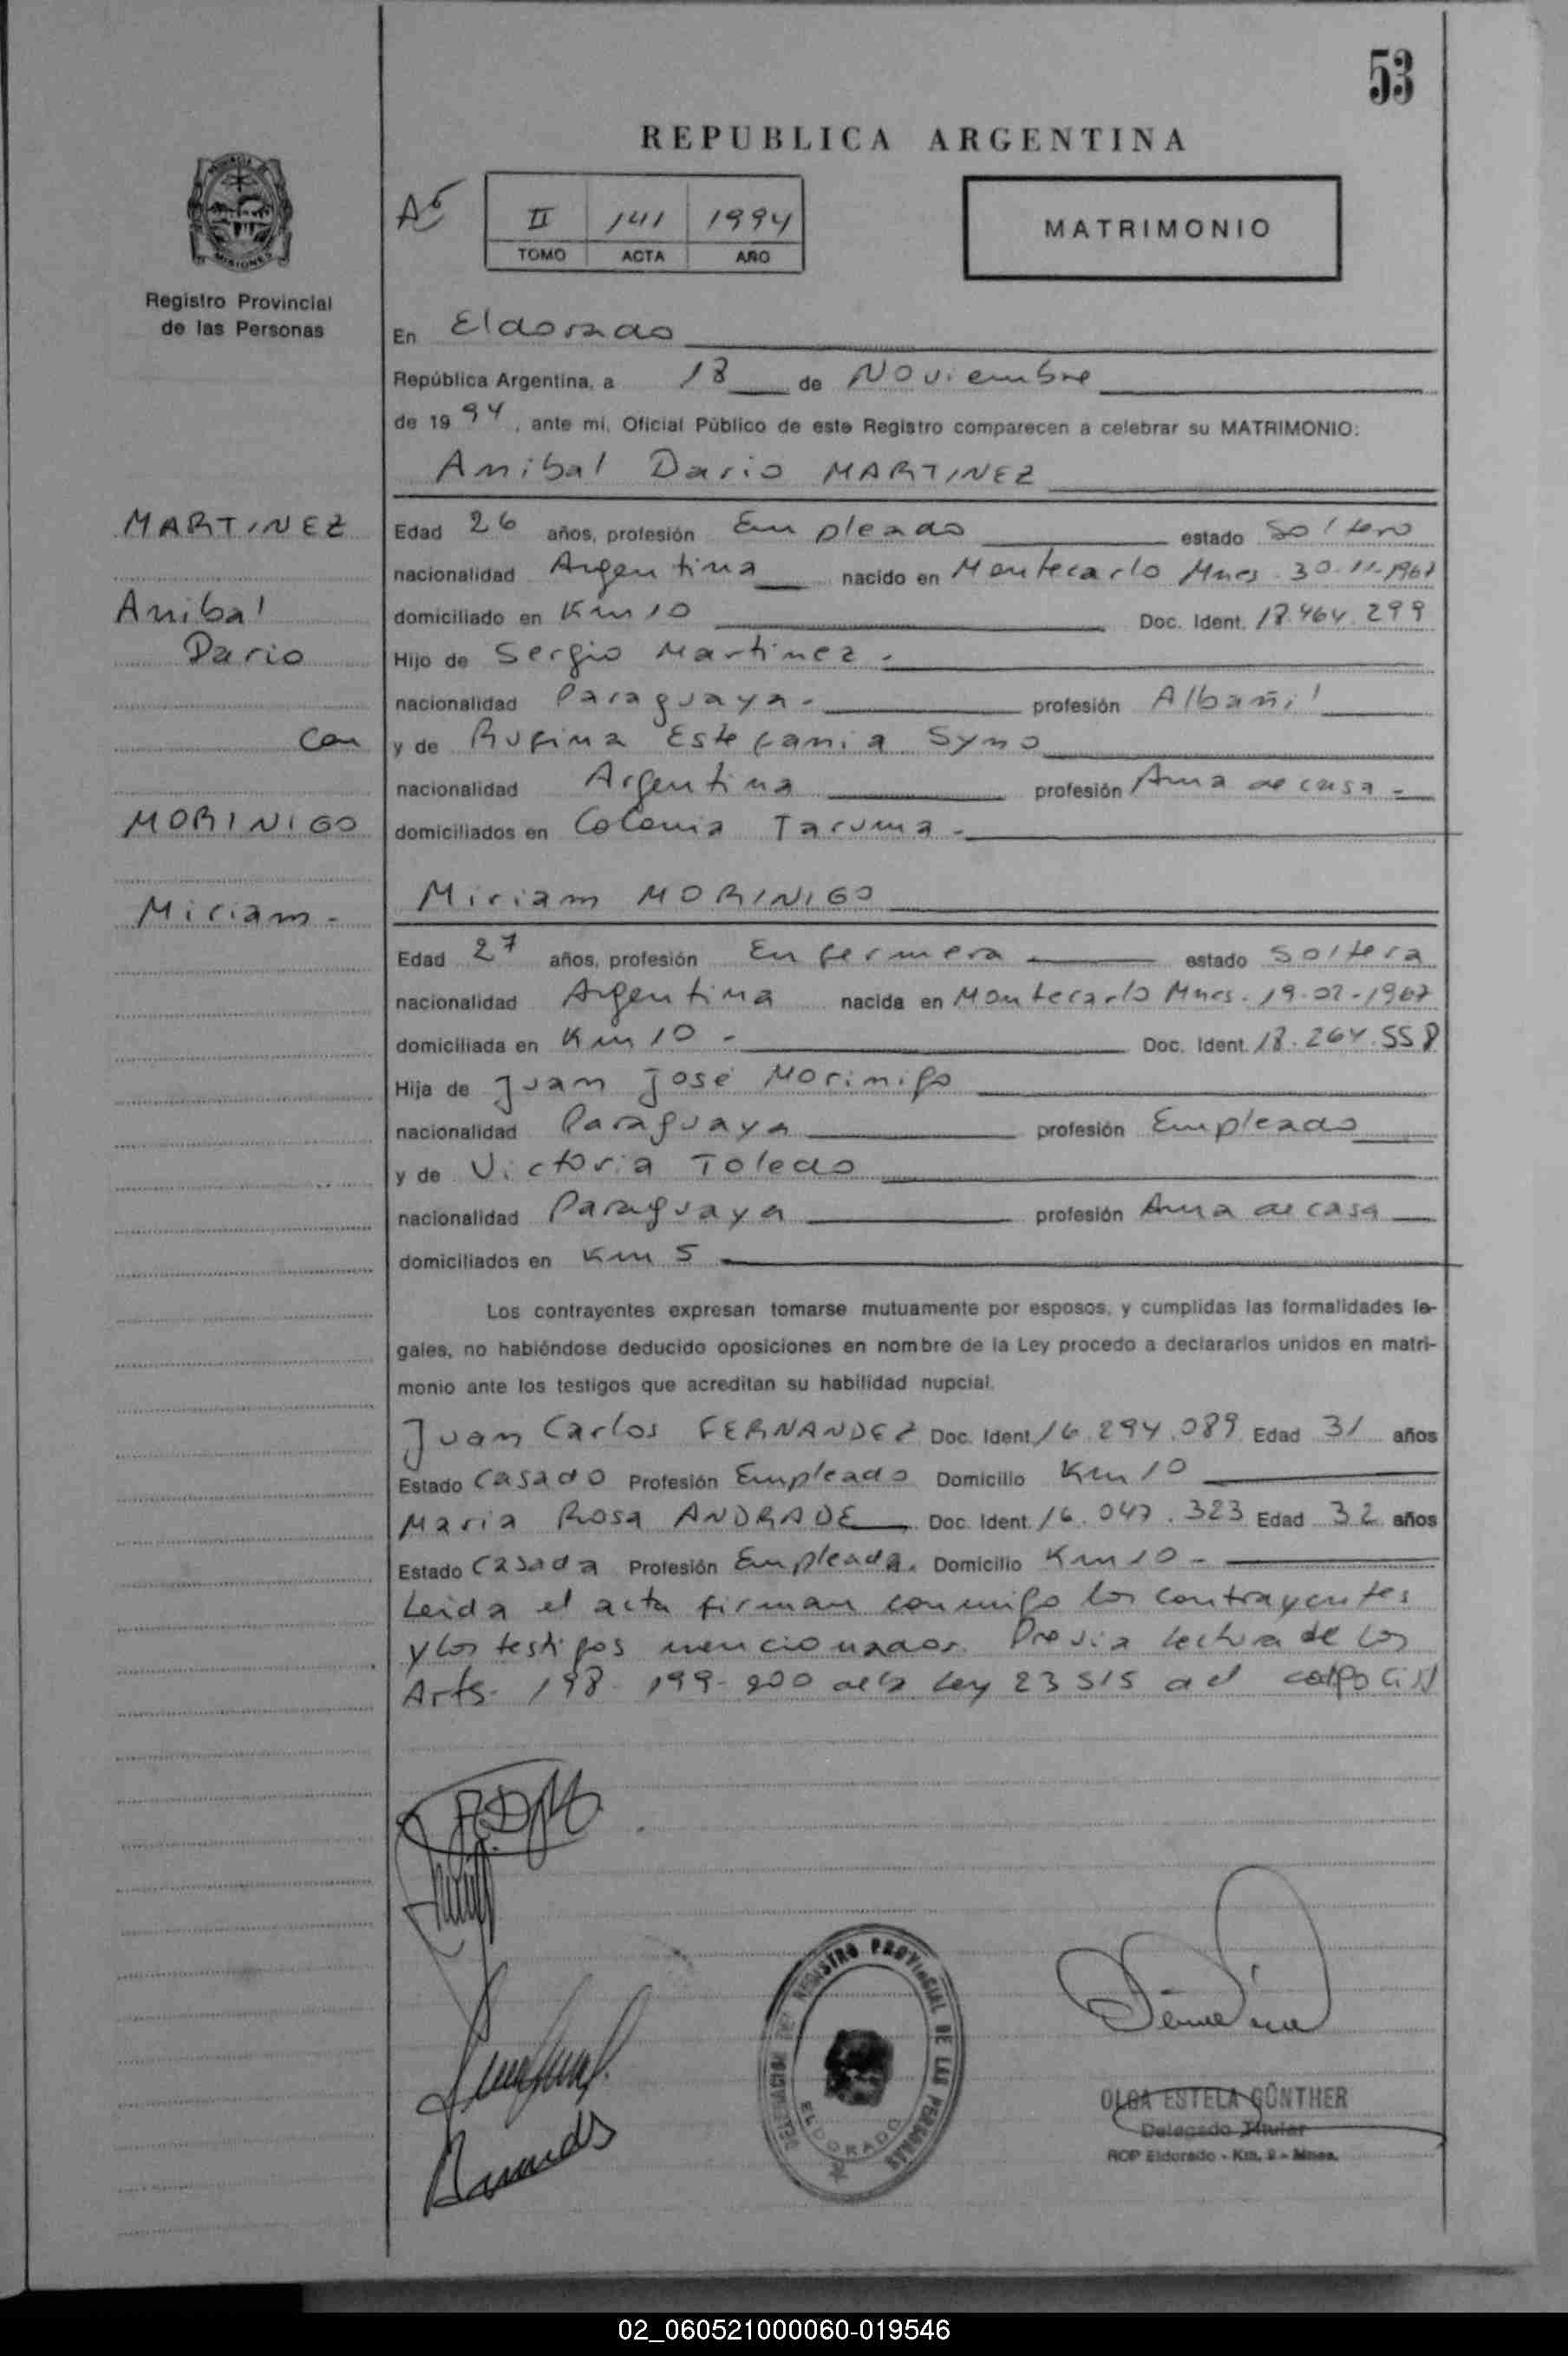 53
REPUBLICA ARGENTINA
II 141 1994
TOMO ACTA AÑO
MATRIMONIO
Registro Provincial
de las Personas
En Eldorado
República Argentina, a 18 de Noviembre
de 1994, ante mi, Oficial Público de este Registro comparecen a celebrar su MATRIMONIO:
Anibal Dario MARTINEZ
MARTINEZ
Anibal
Dario
con
MORINIGO
Miriam -
Edad 26 años, profesión Empleado estado Soltero
nacionalidad Argentina nacido en Montecarlo Mnes. 30-11-1967
domiciliado en Km 10 Doc. Ident. 18.464.299
Hijo de Sergio Martinez -
nacionalidad Paraguaya - profesión Albañil
y de Rufina Estefania Syno
nacionalidad Argentina profesión Ama de casa -
domiciliados en Colonia Taruma -
Miriam MORINIGO
Edad 27 años, profesión Enfermera estado Soltera
nacionalidad Argentina nacida en Montecarlo Mnes. 19-02-1967
domiciliada en Km 10 - Doc. Ident. 18.264.558
Hija de Juan José Morinigo
nacionalidad Paraguaya profesión Empleado
y de Victoria Toledo
nacionalidad Paraguaya profesión Ama de casa
domiciliados en Km 5
Los contrayentes expresan tomarse mutuamente por esposos, y cumplidas las formalidades le-
gales, no habiéndose deducido oposiciones en nombre de la Ley procedo a declararlos unidos en matri-
monio ante los testigos que acreditan su habilidad nupcial.
Juan Carlos FERNANDEZ Doc. Ident. 16.294.089 Edad 31 años
Estado Casado Profesión Empleado Domicilio Km 10
Maria Rosa ANDRADE Doc. Ident. 16.047.323 Edad 32 años
Estado Casada Profesión Empleada. Domicilio Km 10 -
Leida el acta firman conmigo los contrayentes
y los testigos mencionados. Previa lectura de los
Arts. 198-199-200 de la Ley 23515 del codigo Civil
DELEGACION DEL REGISTRO PROVINCIAL DE LAS PERSONAS
ELDORADO
OLGA ESTELA GÜNTHER
Delegado Titular
RCP Eldorado - Km. 9 - Mnes.
02_060521000060-019546